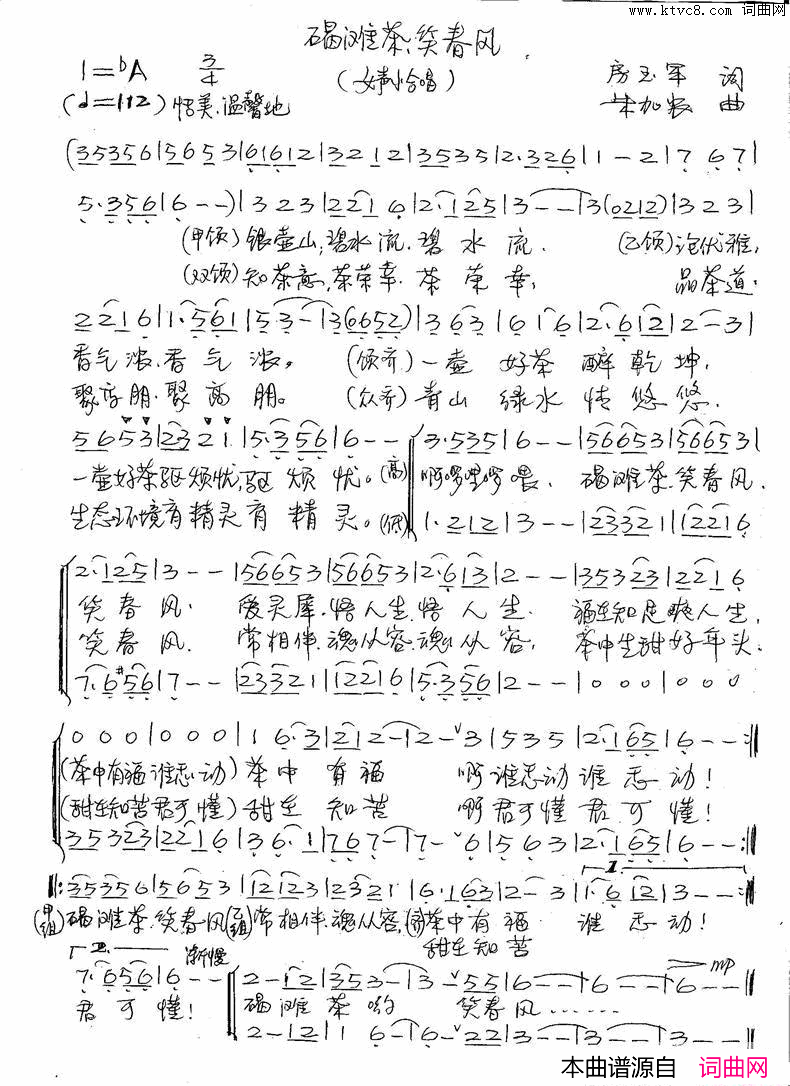 www.ktvc8.com 词曲网
碣滩茶,笑春风
(女声小合唱)
1=bA 3/4
房玉军 词
曲
(♩=112) 恬美.温馨地
(35356|56053|61612|3212|35355|2·326|1-2|7 67|
5·356|6--)|323|2216|2·125|3--|3(0212)|323|
(甲领)银壶山,碧水流.碧水流. (乙领)泡优雅,
(双领)知茶意,茶荣幸.茶荣幸, 品茶道.
2216|1·561|5·3-|3(0652)|363|6 1 6|2·612|2-3|
香气浓.香气浓。(领齐)一壶好茶醉乾坤,
聚高朋.聚高朋。(众齐)青山绿水情悠悠.
5653|2321|5·356|6--|3·535|6--|566053|566053|
一壶好茶驱烦忧,驱烦忧。(高)啊啰哩啰喂. 碣滩茶.笑春风.
生态环境育精灵育精灵。(低)1·212|3--|23321|12216
2·125|3--|566053|566053|2·613|2--|35323|2216
笑春风. 爱灵犀.悟人生.悟人生. 福在知足爽人生,
笑春风. 常相伴.魂从容.魂从容, 茶中生甜好年头.
7·6#56|7--|23321|12216|5·356|2--|000|000
000|000|1 6·3|212-|2-3|535|2·165|6--:‖
(茶中有福谁忘动)茶中有福 啊谁忘动谁忘动!
(甜在知苦君可懂)甜在知苦 啊君可懂君可懂!
35323|2216|36·1|767-|7-6|563|2·165|6--:‖
1.
‖:35356|56053|12123|2321|6·163|2-3|1·612|3--:‖
(甲组)碣滩茶.笑春风(乙组)常相伴.魂从容,(齐)茶中有福 谁忘动!
甜在知苦
2. 渐慢 mp
7·656|6--|2-12|353-|3-55|6--|6--|6--‖
君可懂! 碣滩茶哟 笑春风……
2-12|1 6-|6-22|3--|3--|3--‖
本曲谱源自 词曲网